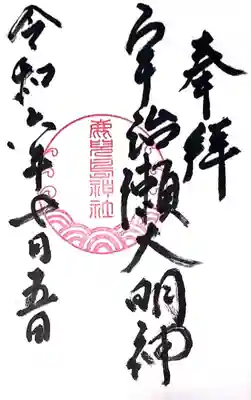 奉拝
宇治瀬大明神
鹿児島神社
令和六年七月五日